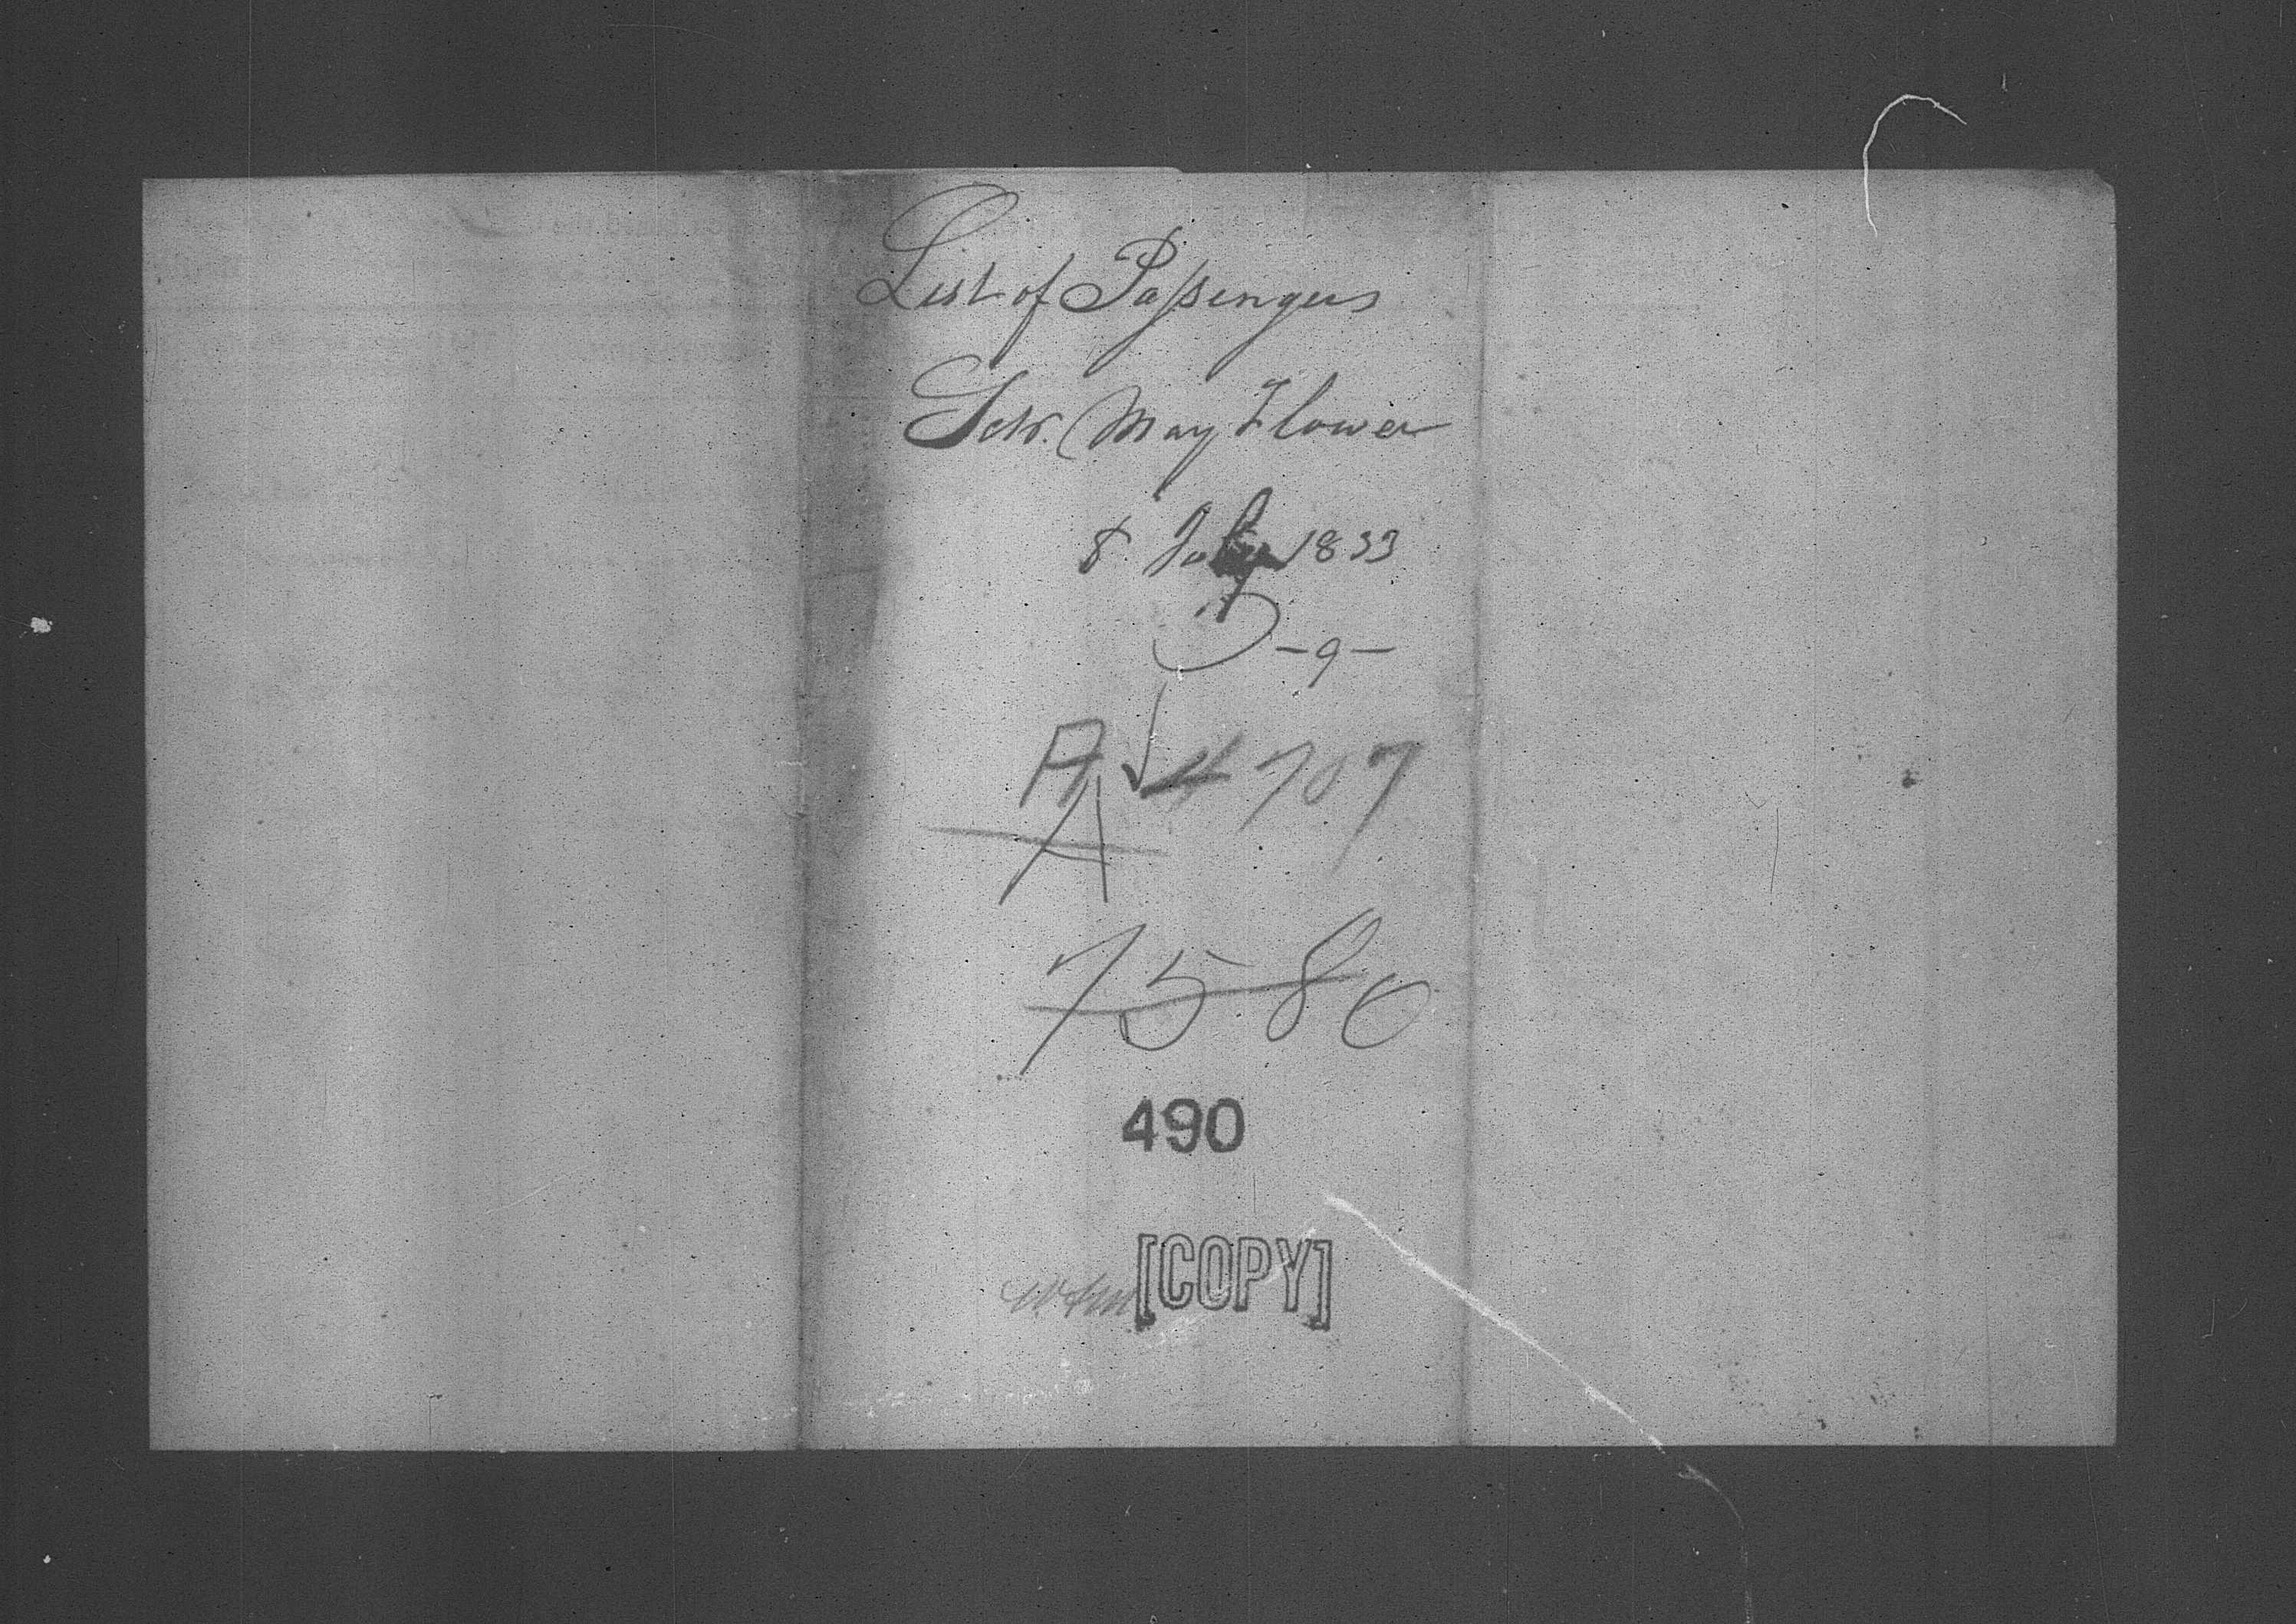 List of Passengers
Schr. May Flower
8 July 1833
-9-
A 4707
A
7580
490
[COPY]